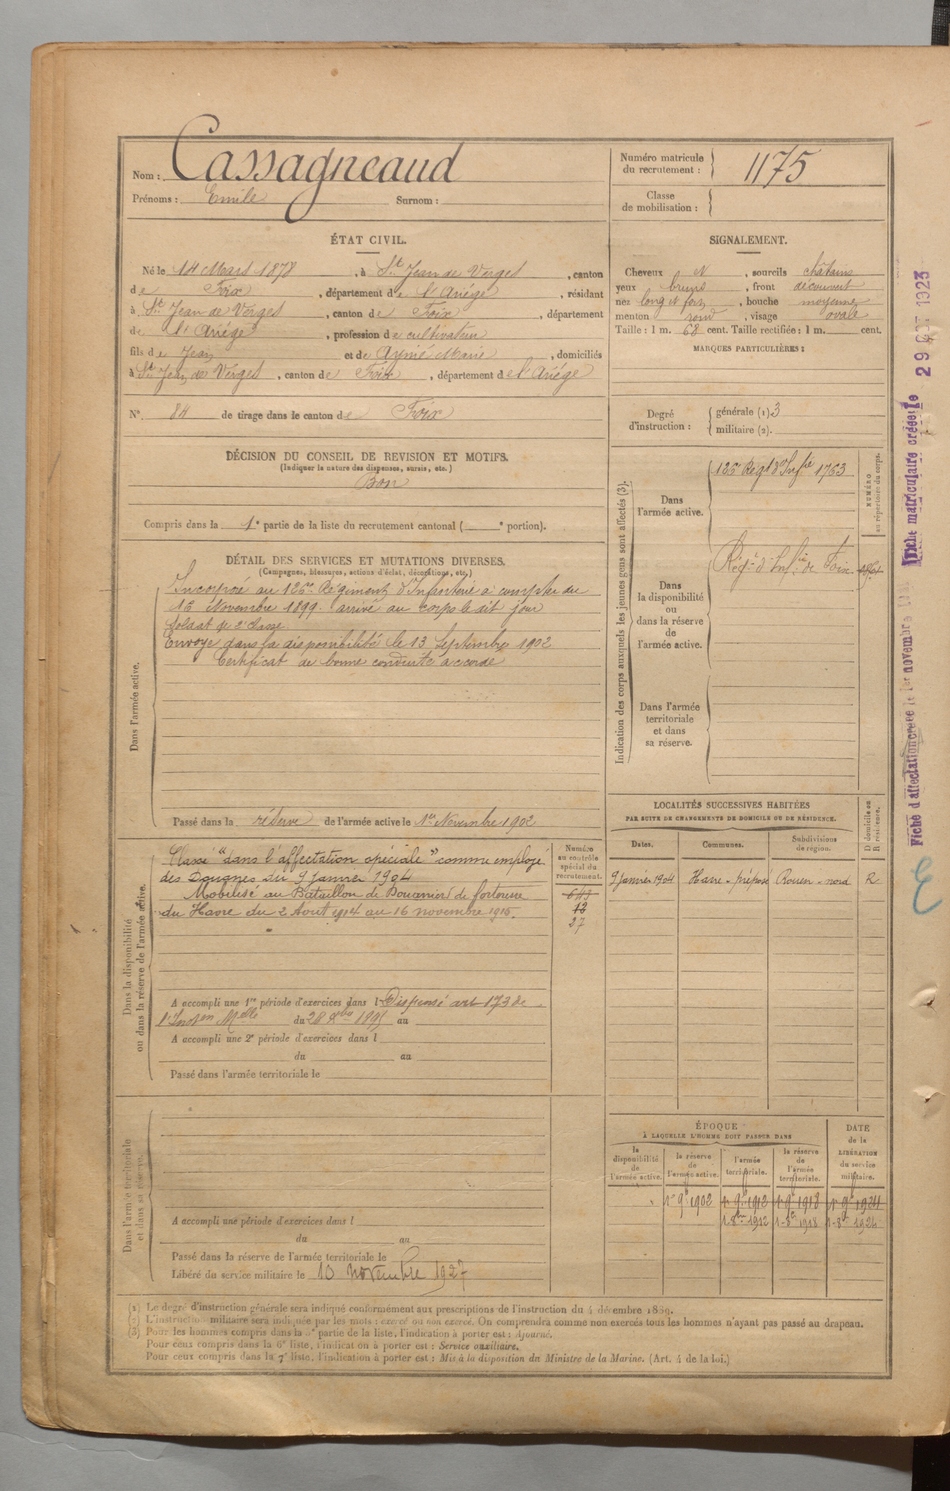 Nom : Cassagneaud
Prénoms : Emile Surnom :
Numéro matricule du recrutement : 1175
Classe de mobilisation :
ÉTAT CIVIL.
Né le 14 Mars 1878, à St Jean de Verges, canton
de Foix, département de l'Ariège, résidant
à St Jean de Verges, canton de Foix, département
de l'Ariège, profession de cultivateur
fils de Jean et de Aymé Marie, domiciliés
à St Jean de Verges, canton de Foix, département de l'Ariège
N° 84 de tirage dans le canton de Foix
SIGNALEMENT.
Cheveux N, sourcils châtains
yeux bruns, front découvert
nez long et fort, bouche moyenne
menton rond, visage ovale
Taille : 1 m. 68 cent. Taille rectifiée : 1 m. cent.
MARQUES PARTICULIÈRES :
Degré d'instruction : générale (1) 3
militaire (2).
DÉCISION DU CONSEIL DE REVISION ET MOTIFS.
(Indiquer la nature des dispenses, sursis, etc.)
Bon
Compris dans la 1e partie de la liste du recrutement cantonal ( e portion).
DÉTAIL DES SERVICES ET MUTATIONS DIVERSES.
(Campagnes, blessures, actions d'éclat, décorations, etc.)
Dans l'armée active.
Incorporé au 126me Régiment d'Infanterie à compter du
16 Novembre 1899 arrivé au corps le dit jour
Soldat de 2e classe
Envoyé dans la disponibilité le 13 Septembre 1902
Certificat de bonne conduite accordé
Passé dans la réserve de l'armée active le 1er Novembre 1902
Indication des corps auxquels les jeunes gens sont affectés (3).
NUMÉRO au répertoire du corps.
Dans l'armée active.
126 Regt d'Infie 1763
Dans la disponibilité ou dans la réserve de l'armée active.
Régt d'Infie de Foix
Dans l'armée territoriale et dans sa réserve.
Dans la disponibilité ou dans la réserve de l'armée active.
Classé "dans l'affectation spéciale" comme employé
des Douanes du 9 janvier 1904
Mobilisé au Bataillon de Douaniers de forteresse
du Havre du 2 Août 1914 au 16 novembre 1915.
Numéro au contrôle spécial du recrutement.
643
12
27
A accompli une 1re période d'exercices dans l Dispensé art 173 de
l'Inson Melle du 28 Xbre 1895 au
A accompli une 2e période d'exercices dans l
du au
Passé dans l'armée territoriale le
LOCALITÉS SUCCESSIVES HABITÉES
PAR SUITE DE CHANGEMENTS DE DOMICILE OU DE RÉSIDENCE.
D domicile ou R résidence.
Dates. Communes. Subdivisions de région.
9 janvier 1904 Havre - préposé Rouen - nord R
Dans l'armée territoriale et dans sa réserve.
A accompli une période d'exercices dans l
du au
Passé dans la réserve de l'armée territoriale le
Libéré du service militaire le 10 novembre 1927
ÉPOQUE
À LAQUELLE L'HOMME DOIT PASSER DANS
DATE de la LIBÉRATION du service militaire.
la disponibilité de l'armée active. la réserve de l'armée active. l'armée territoriale. la réserve de l'armée territoriale.
1r 9b 1902 1r 9b 1912 1r 9b 1918 1r 9b 1924
1-8bre 1912 1-8b 1918 1-8b 1924
(1) Le degré d'instruction générale sera indiqué conformément aux prescriptions de l'instruction du 4 décembre 1889.
(2) L'instruction militaire sera indiquée par les mots : exercé ou non exercé. On comprendra comme non exercés tous les hommes n'ayant pas passé au drapeau.
(3) Pour les hommes compris dans la 5e partie de la liste, l'indication à porter est : Ajourné.
Pour ceux compris dans la 6e liste, l'indication à porter est : Service auxiliaire.
Pour ceux compris dans la 7e liste, l'indication à porter est : Mis à la disposition du Ministre de la Marine. (Art. 4 de la loi.)
Fiche d'affectation créée le 1er novembre
Fiche matriculaire créée le 29 OCT 1923